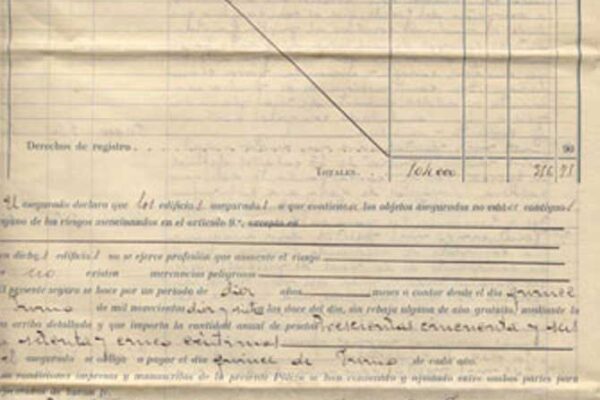 Derechos de registro . . . 90
TOTALES. 104.000 356 75
El asegurado declara que los edificios asegurados o que contienen los objetos asegurados no están contiguos
ninguno de los riesgos mencionados en el artículo 9.º, excepto en
en dichos edificios no se ejerce profesión que aumente el riesgo
no existen mercancías peligrosas
El presente seguro se hace por un período de diez años meses a contar desde el día quince
Junio de mil novecientos diez y siete las doce del día, sin rebaja alguna de año gratuito, mediante la
arriba detallada y que importa la cantidad anual de pesetas Trescientas cincuenta y seis
setenta y cinco céntimos
El asegurado se obliga a pagar el día quince de Junio de cada año.
condiciones impresas y manuscritas de la presente Póliza se han convenido y ajustado entre ambas partes para
de buena fe.